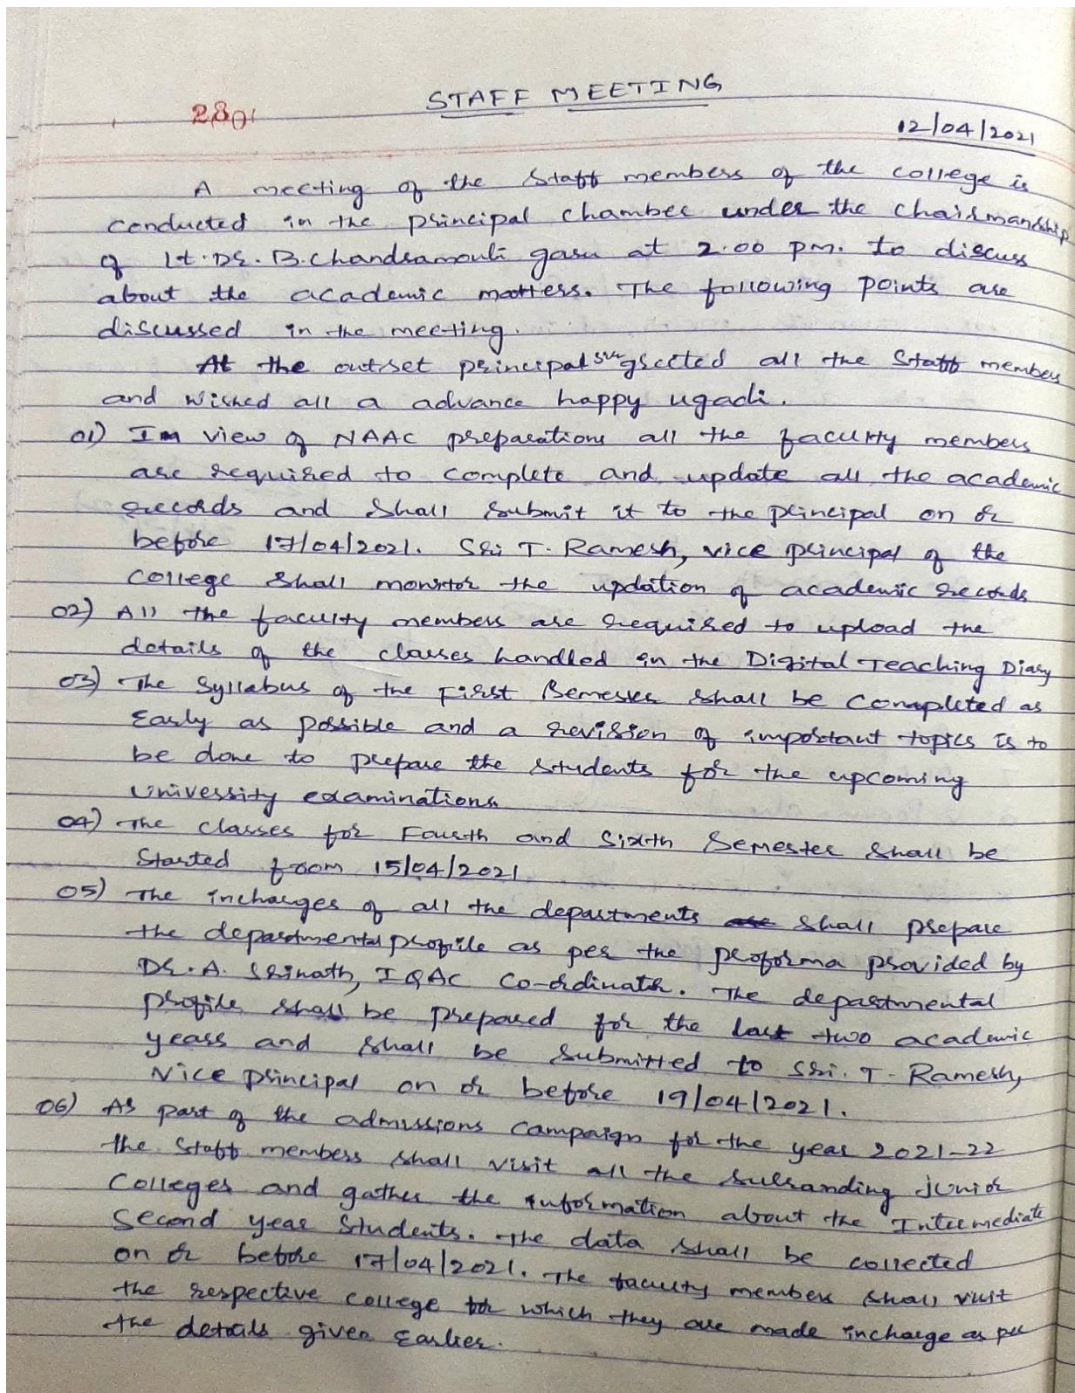 STAFF MEETING
280
12/04/2021
A meeting of the Staff members of the college is
conducted in the principal chamber under the chairmanship
of Lt. Dr. B. Chandramouli garu at 2.00 pm. to discuss
about the academic matters. The following points are
discussed in the meeting.
At the outset principal sir greeted all the Staff members
and wished all a advance happy ugadi.
01) In view of NAAC preparations all the faculty members
are required to complete and update all the academic
records and shall submit it to the principal on or
before 17/04/2021. Sri T. Ramesh, vice principal of the
college shall monitor the updation of academic records
02) All the faculty members are required to upload the
details of the classes handled in the Digital Teaching Diary
03) The Syllabus of the First Semester shall be completed as
Early as possible and a revision of important topics is to
be done to prepare the students for the upcoming
University examinations
04) The classes for Fourth and Sixth Semester shall be
Started from 15/04/2021
05) The incharges of all the departments shall prepare
the departmental profile as per the proforma provided by
Dr. A. Srinath, IQAC Co-ordinator. The departmental
profile shall be prepared for the last two academic
years and shall be submitted to Sri. T. Ramesh,
Vice principal on or before 19/04/2021.
06) As part of the admissions campaign for the year 2021-22
the Staff members shall visit all the sulranding junior
Colleges and gather the information about the Intermediate
Second year Students. The data shall be collected
on or before 17/04/2021. The faculty members shall visit
the respective college for which they are made incharge as per
the details given Earlier.